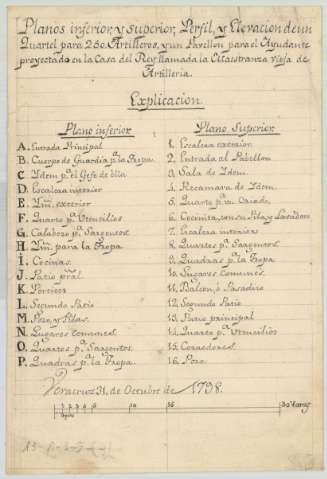 Planos inferior, y superior, Perfil, y Elevacion de un
Quartel para 250 Artilleros, y un Pavellon para el Ayudante
proyectado en la Casa del Rey llamada la Maestranza vieja de
Artilleria.
Explicacion
Plano inferior
A. Entrada Principal
B. Cuerpo de Guardia pª la Tropa
C. Ydem pª el Gefe de ella
D. Escalera interior
E. Ydm. exterior
F. Quarto pª Utencilios
G. Calabozo pª Sargentos
H. Ydm. para la Tropa
I. Cocinas
J. Patio pral.
K. Porticos
L. Segundo Patio
M. Pozo, y Pilas
N. Lugares comunes
O. Quartos pª Sargentos
P. Quadras pª la Tropa
Plano Superior
1. Escalera exterior
2. Entrada al Pabellon
3. Sala de Idem
4. Recamara de Idem
5. Quarto pª un Criado
6. Cocinita, con su Pila, y Lavadero
7. Escalera interior
8. Quartos pª Sargentos
9. Quadras pª la Tropa
10. Lugares comunes
11. Balcon, ó Pasadizo
12. Segundo Patio
13. Patio principal
14. Quarto pª Utencilios
15. Corredores
16. Pozo
Veracruz 31, de Octubre de 1798.